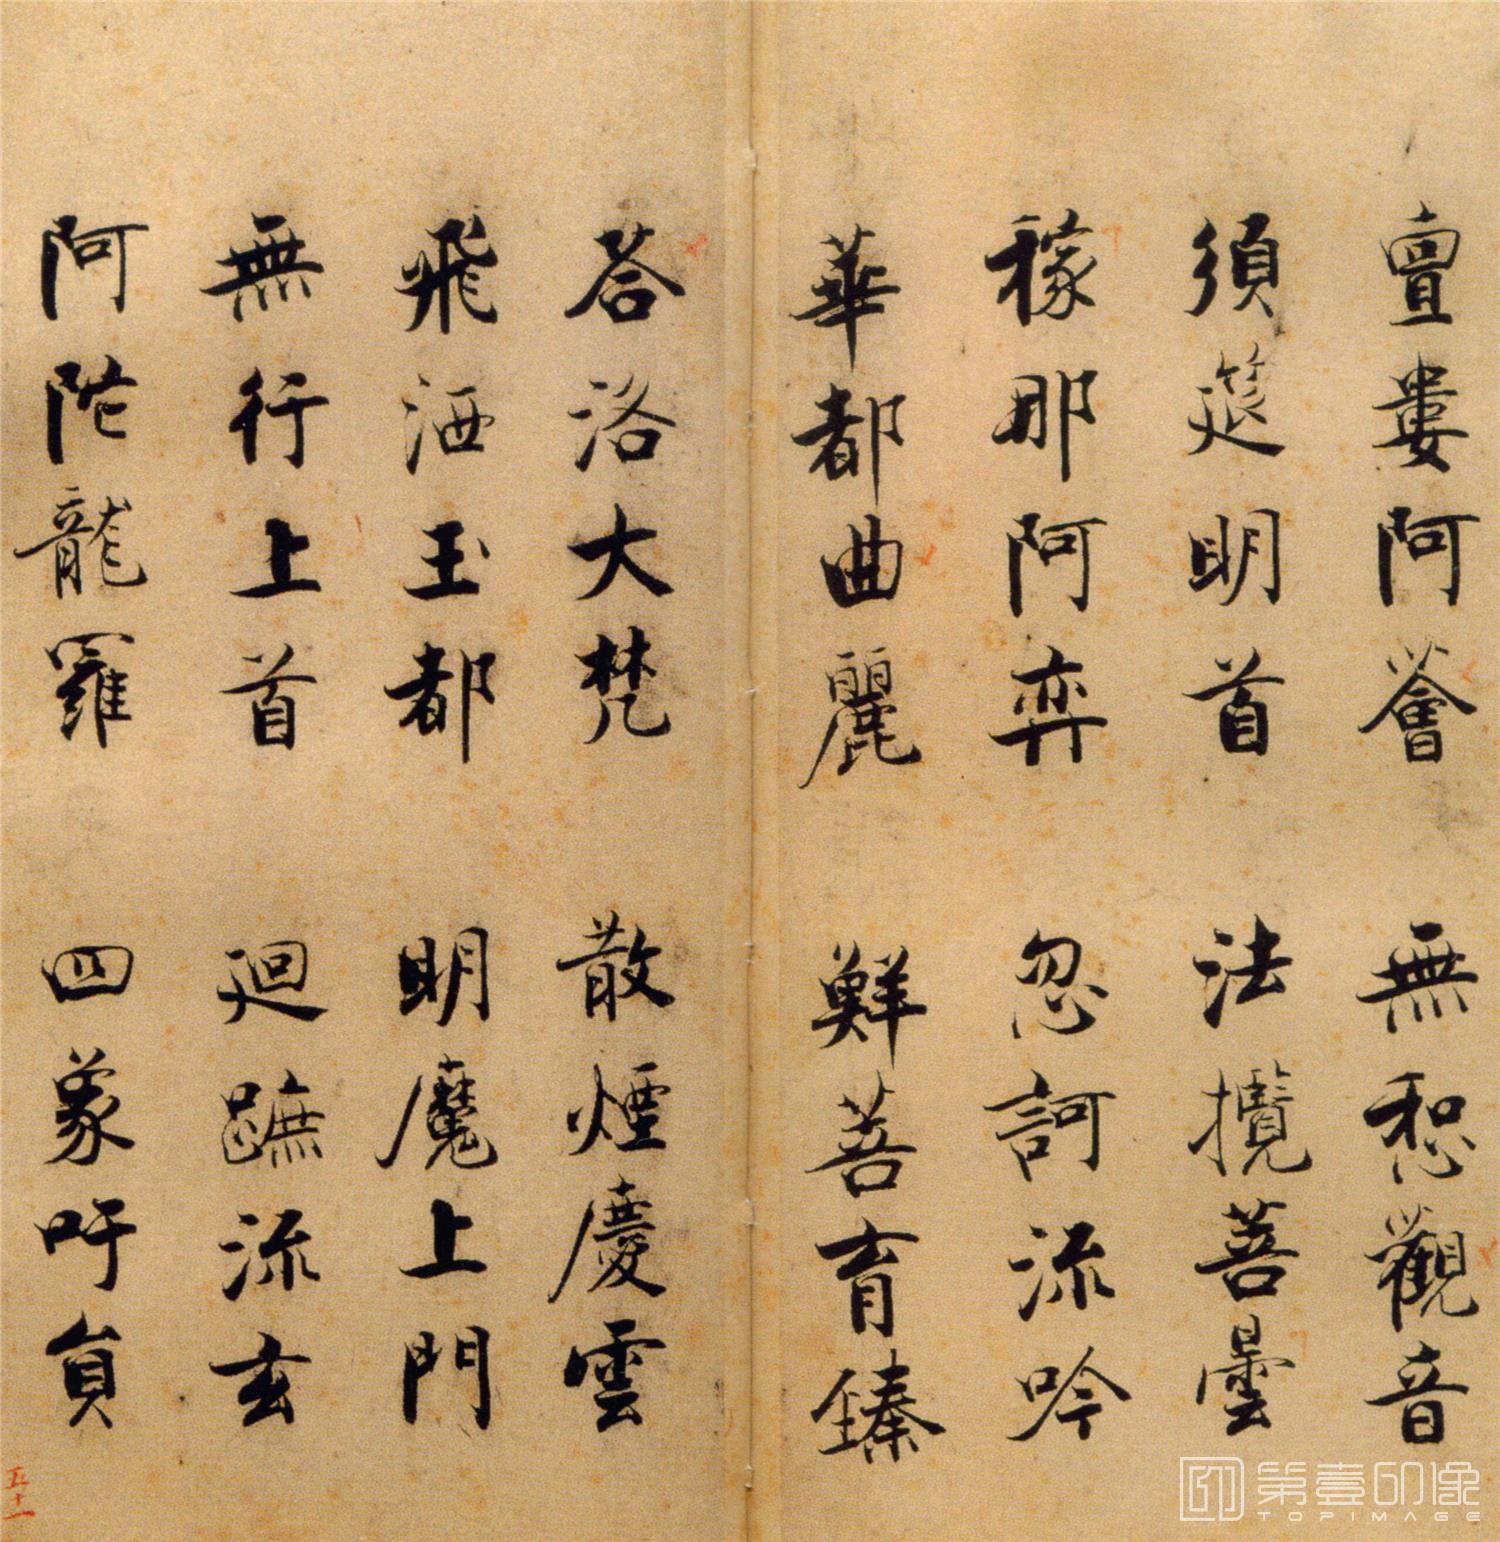 亶婁阿薈 無惒觀音
須筵明首 法攬菩曇
稼那阿弈 忽訶流吟
華都曲麗 鮮菩育臻
荅洛大梵 散煙慶雲
飛洒玉都 明魔上門
無行上首 廻蹠流玄
阿陀龍羅 四象吁員
五十一
第壹印像
TOPIMAGE